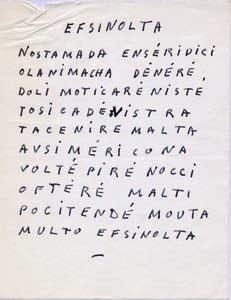 EFSINOLTA
NOSTAMADA ENSÉRIDICI
OLANIMACHA DÉNÉRÉ
DOLI MOTICARÉ NISTE
TOSICADÉNISTRA
TACENIRE MALTA
AUSIMÉRICONA
VOLTÉ PIRÉ NOCCI
OPTÉRÉ MALTI
POCITENDÉ MOUTA
MULTO EFSINOLTA
–